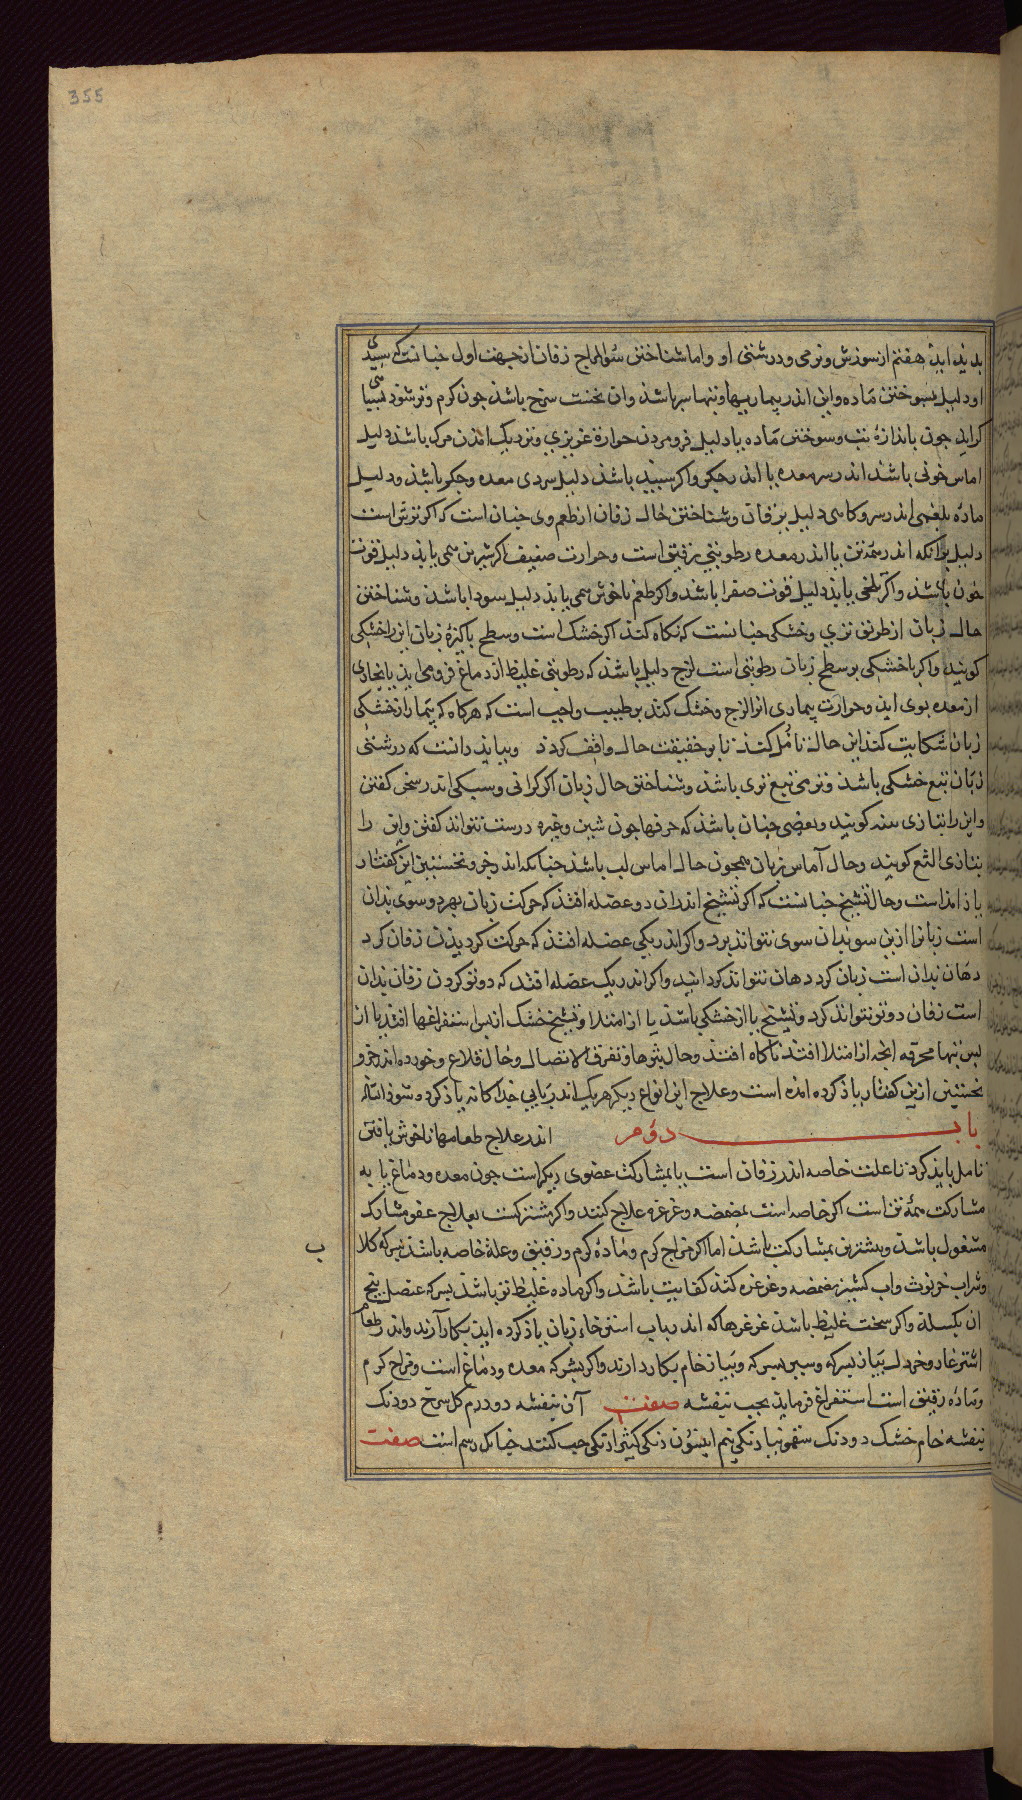 355
بدید اید هفتم از سوزش و نرمی و درشتی او و اما شناختن سوالمزاج زفان از جهت اول چنانست که سیاهی
او دلیل سوختن ماده و این اندر بیماریها و تبها سر باشد و ان نخست سرخ باشد جون کرم و تر شود بسیاهی
کراید جون باندازۀ تب و سوختن ماده یا دلیل فرومردن حرارة غریزی و نزدیک امدن مرک باشد دلیل
اماس خونی باشد اندر سر معده یا اندر جکر و اکر سبید باشد دلیل سردی معده و جکر باشد و دلیل
مادۀ بلغمی اندر سر و کاهی دلیل یرقان و شناختن حال زفان از طعم وی چنان است که اکر ترش است
دلیل برانکه اندر همه تن یا اندر معده رطوبتی رقیق است و حرارت ضعیف اکر شیرین همی یابد دلیل قوت
خون باشد و اکر تلخی یابد دلیل قوت صفرا باشد و اکر طعم ناخوش همی یابد دلیل سودا باشد و شناختن
حال زبان از طریق تری و خشکی چنانست که نکاه کند اکر خشک است و سطح پاکیزۀ زبان این را خشکی
کویند و اکر با خشکی بر سطح زبان رطوبتی است لزج دلیل باشد که رطوبتی غلیظ از دماغ فرو می اید یا بخاری
از معده بوی اید و حرارت بیماری انرا لزج و خشک کند بر طبیب واجب است که هرکاه که بیمار از خشکی
زبان شکایت کند این حال تامل کند تا بر حقیقت حال واقف کردد و بباید دانست که درشتی
زبان تبع خشکی باشد و نرمی تبع تری باشد و شناختن حال زبان اکر کرانی و سبکی اندر سخن کفتن
و این را بتازی کویند و بعضی چنان باشد که حرفها جون شین و غیره درست نتواند کفتن و این را
بتازی الثغ کویند و حال آماس زبان همجون حال اماس لب باشد چنانکه اندر جزو نخستین این کفتار
یاد امد است و حال تشنج چنانست که اکر تشنج اندران دو عضله افتد که حرکت زبان بهر دو سوی بدان
است زبانرا ازین سو بدان سوی نتواند برد و اکر اندر یکی عضله افتد که حرکت کردیدن زفان کرد
دهان بدان است زبان کرد دهان نتواند کردانید و اکر اندر یک عضله افتد که دوتو کردن زفان بدان
است زفان دوتو نتواند کرد و تشنج یا از خشکی باشد یا از امتلا و تشنج خشک از پس استفراغها افتد یا از
پس تبها محرقه انجه از امتلا افتد ناکاه افتد و حال بثرها و تفرق الاتصال و حال قلاع و خورده اندر جزو
نخستین ازین کفتار یاد کرده امده است و علاج این انواع دیکر هر یک اندر بابی جداکانه یاد کرده شود انشاالله
باب دوم اندر علاج طعامها ناخوش یافتن
تامل باید کرد تا علت خاصه اندر زفان است یا بمشارکت عضوی دیکر است جون معده و دماغ یا به
مشارکت همۀ تن است اکر خاصه است بمضمضه و غرغره علاج کنند و اکر مشترکست بعلاج عضو مشارک
مشغول باشد و بیشترین بمشارکت باشد اما اکر مزاج کرم و مادۀ کرم و رقیق و علة خاصه باشد بسرکه کلا
ب
و شراب خرنوت و اب کشنیز مضمضه و غرغره کند کفایت باشد و اکر ماده غلیظ تر باشد بسرکه عنصل بیخ
ان بکسلد و اکر سخت غلیظ باشد غرغرها که اندر باب استرخاء زبان یاد کرده اید بکار آرند و اندر طعام
اشترغار و خردل بیاز بسرکه و سیر بسرکه و بیاز خام بکار دارند و اکر بشرکه معده و دماغ است و مزاج کرم
و مادۀ رقیق است استفراغ فرماید بحب بنفشه صفت آن بنفشه دو درم کل سرخ دو دنک
بنفشه خام خشک دو دنک سقمونیا دنکی نیم انیسون دنکی کتیرا دنکی حب کنند چنانک رسم است صفت